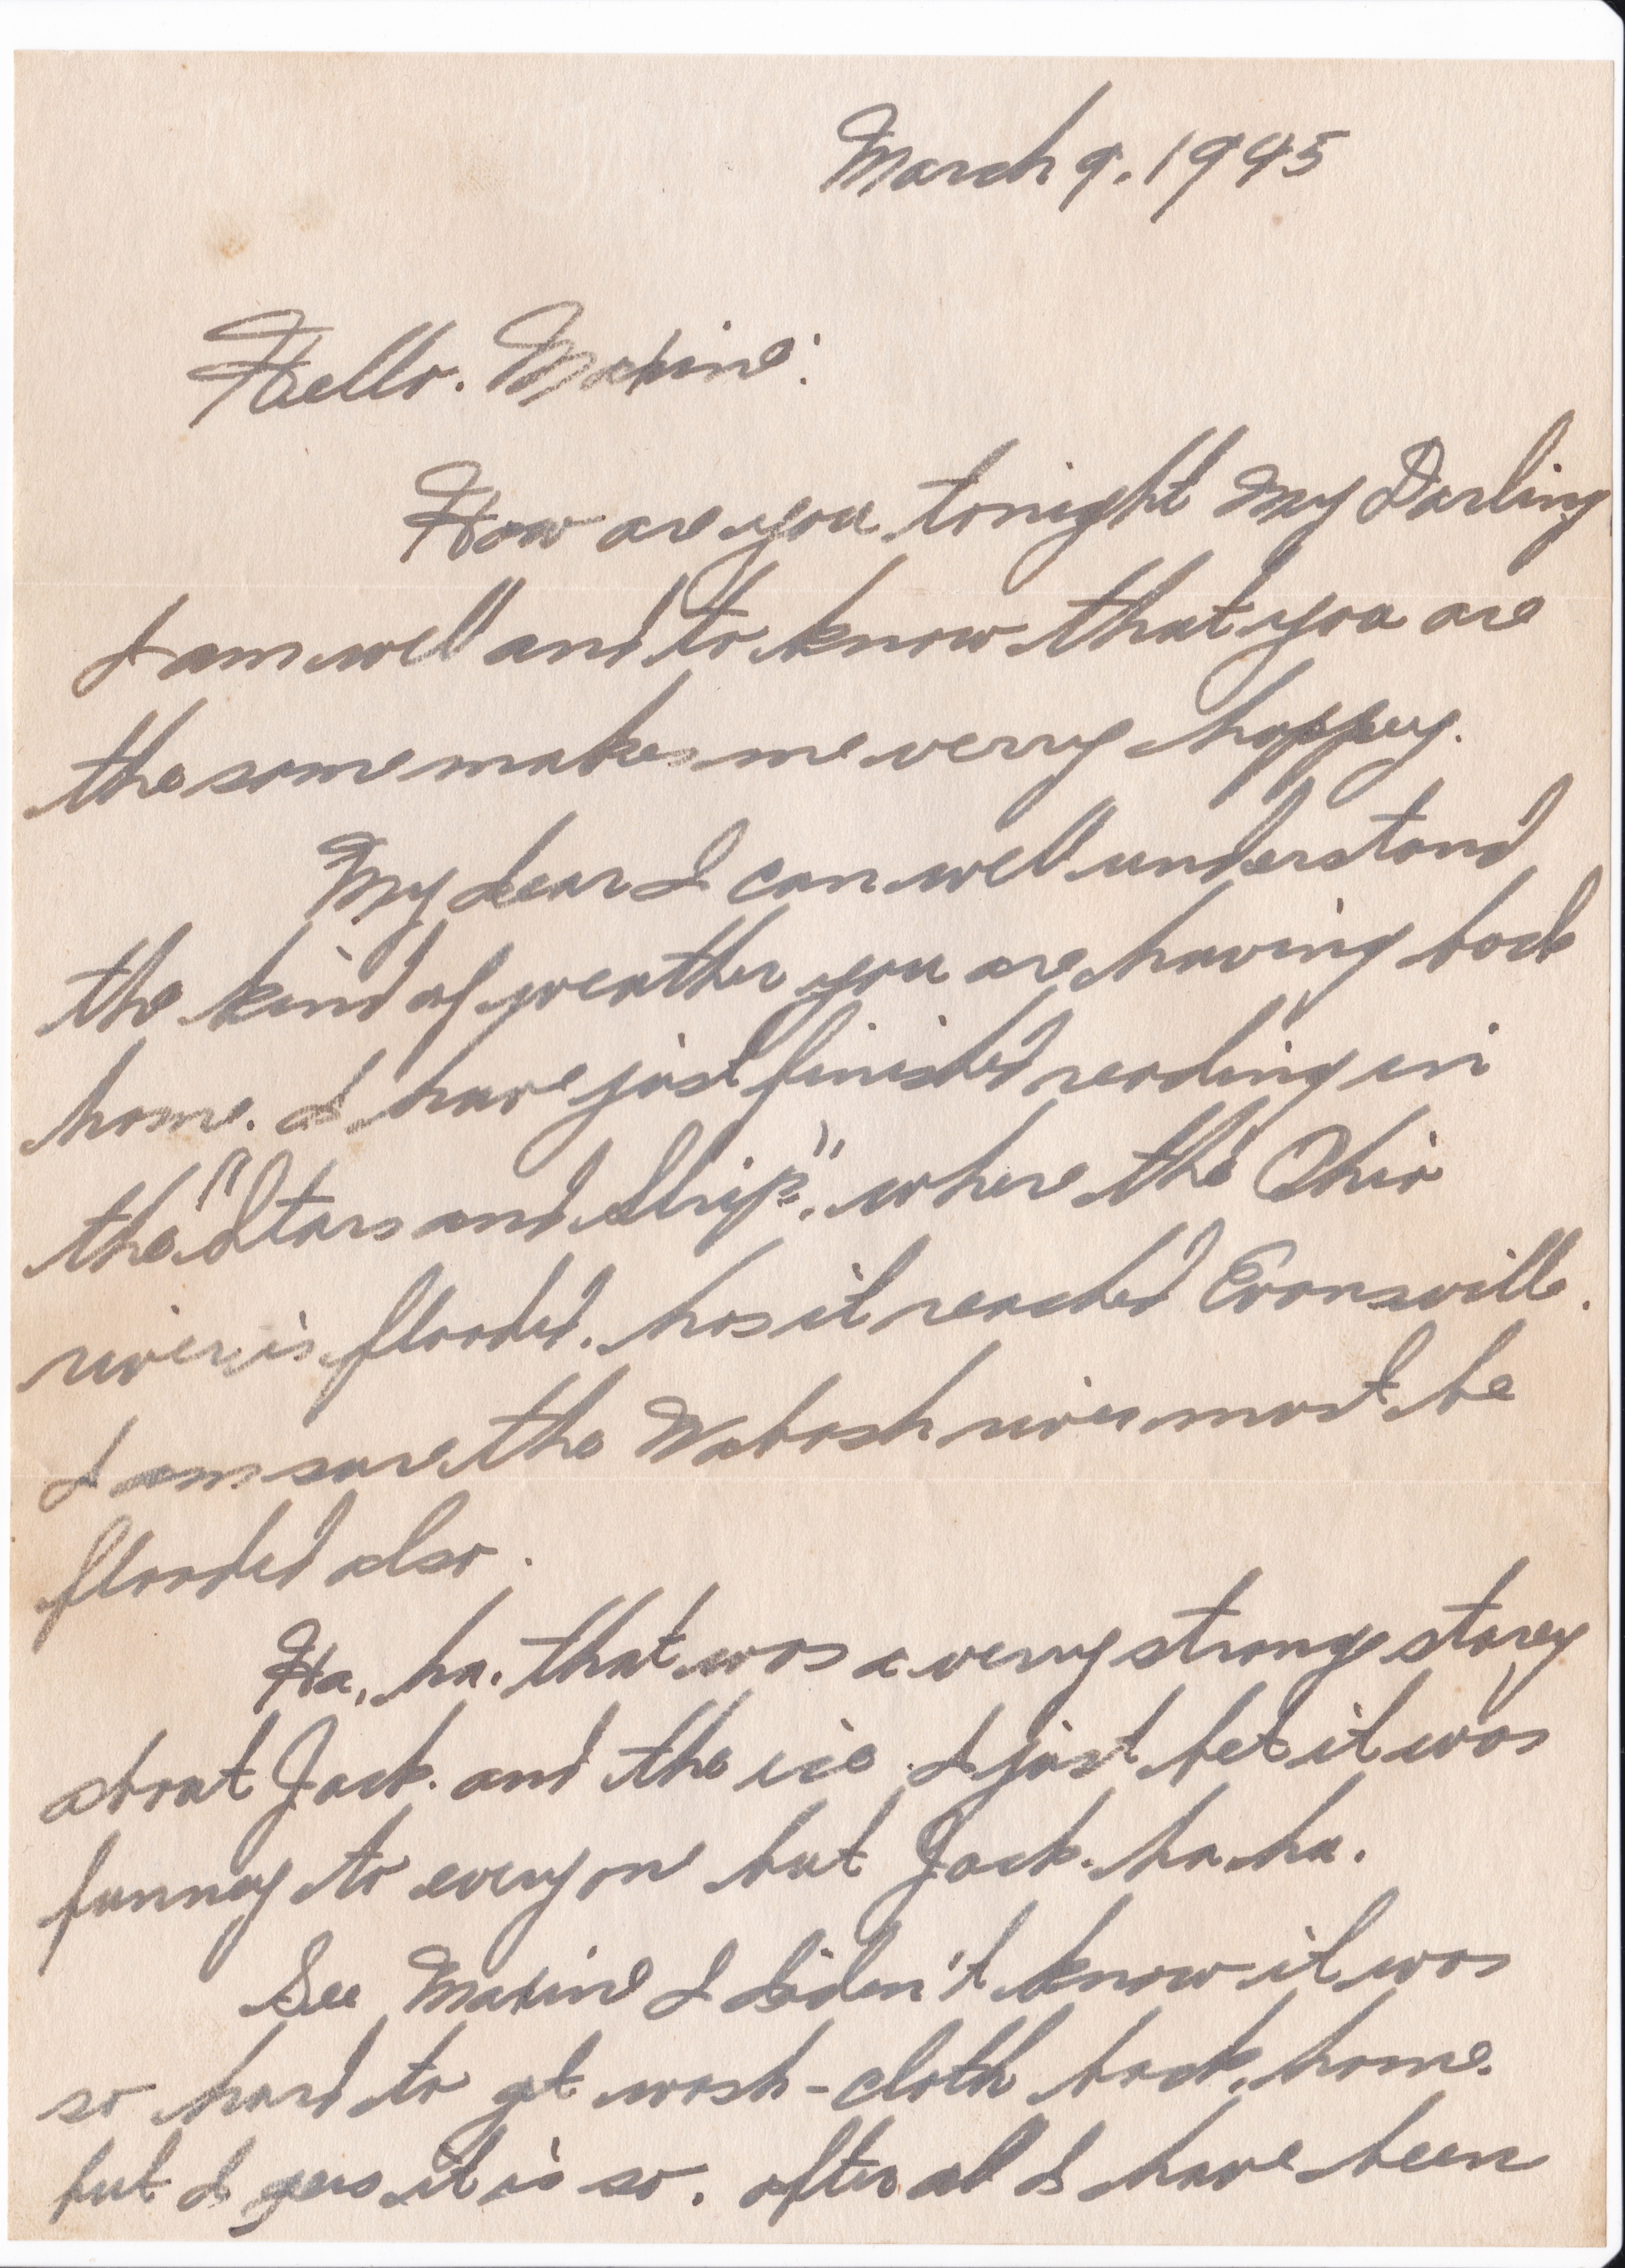 March 9. 1945
Hello. Maxine:
How are you tonight My Darling
I am well and to know that you are
the same makes me verry happy.
My dear I can well understand
the kind of weather you are having back
home. I have just finished reading in
the "Stars and Strip". where the Ohio
river is flooded. has it reached Evansville.
I am sure the Wabash river must be
flooded also.
Ha, ha. that was a verry strange storey
about Jack. and the ice. I just bet it was
funney to everyone but Jack. ha. ha.
See Maxine I diden't know it was
so hard to get wash-cloth back home.
but I gess it is so. after all I have been